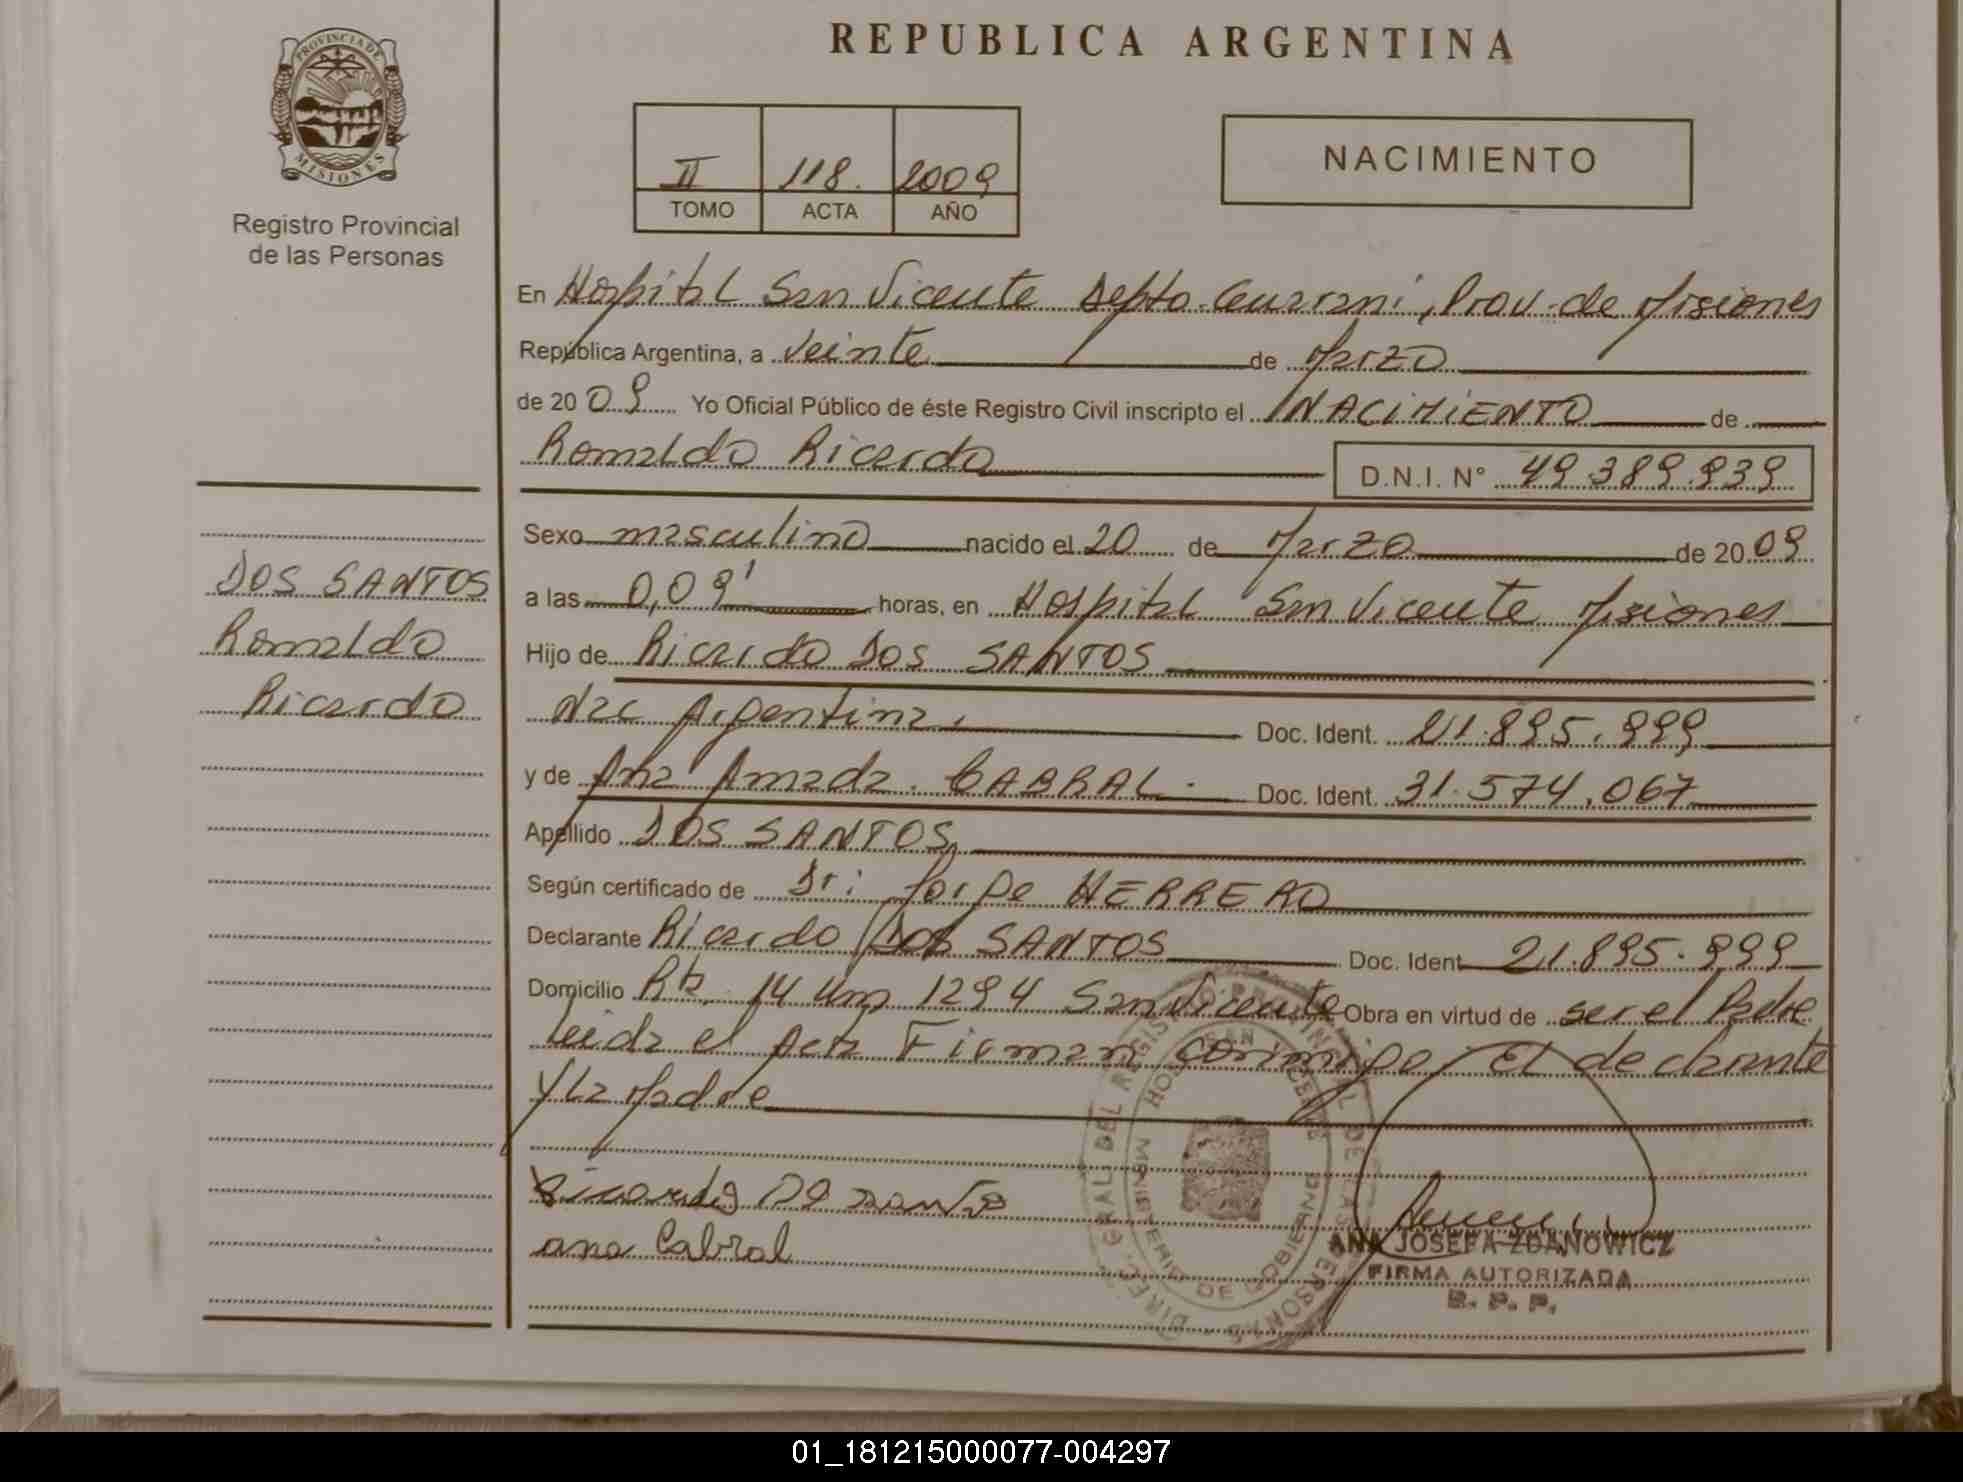 REPUBLICA ARGENTINA
PROVINCIA DE
MISIONES
Registro Provincial
de las Personas
II 118. 2009
TOMO ACTA AÑO
NACIMIENTO
En Hospital San Vicente Depto. Guarani, Prov. de Misiones
República Argentina, a veinte de Marzo
de 2009 Yo Oficial Público de éste Registro Civil inscripto el NACIMIENTO de
Romaldo Ricardo D.N.I. N° 49.389.939
Sexo masculino nacido el 20 de Marzo de 2009
a las 0,09' horas, en Hospital San Vicente Misiones
Hijo de Ricardo DOS SANTOS
Nac Argentina. Doc. Ident. 21.895.999
y de Ana Amada. CABRAL. Doc. Ident. 31.574.067
Apellido DOS SANTOS
Según certificado de Dr: Jorge HERRERO
Declarante Ricardo DOS SANTOS Doc. Ident 21.895.999
Domicilio Rta. 14 Km 1294 San Vicente Obra en virtud de ser el Padre
leida el Acta Firman conmigo El declarante
y La Madre
DOS SANTOS
Romaldo
Ricardo
ana Cabral
DIREC. GRAL DEL REGISTRO PROVINCIAL DE LAS PERSONAS
HOSP. SAN VICENTE
MINISTERIO DE GOBIERNO
ANA JOSEFA ZDANOWICZ
FIRMA AUTORIZADA
R. P. P.
01_181215000077-004297